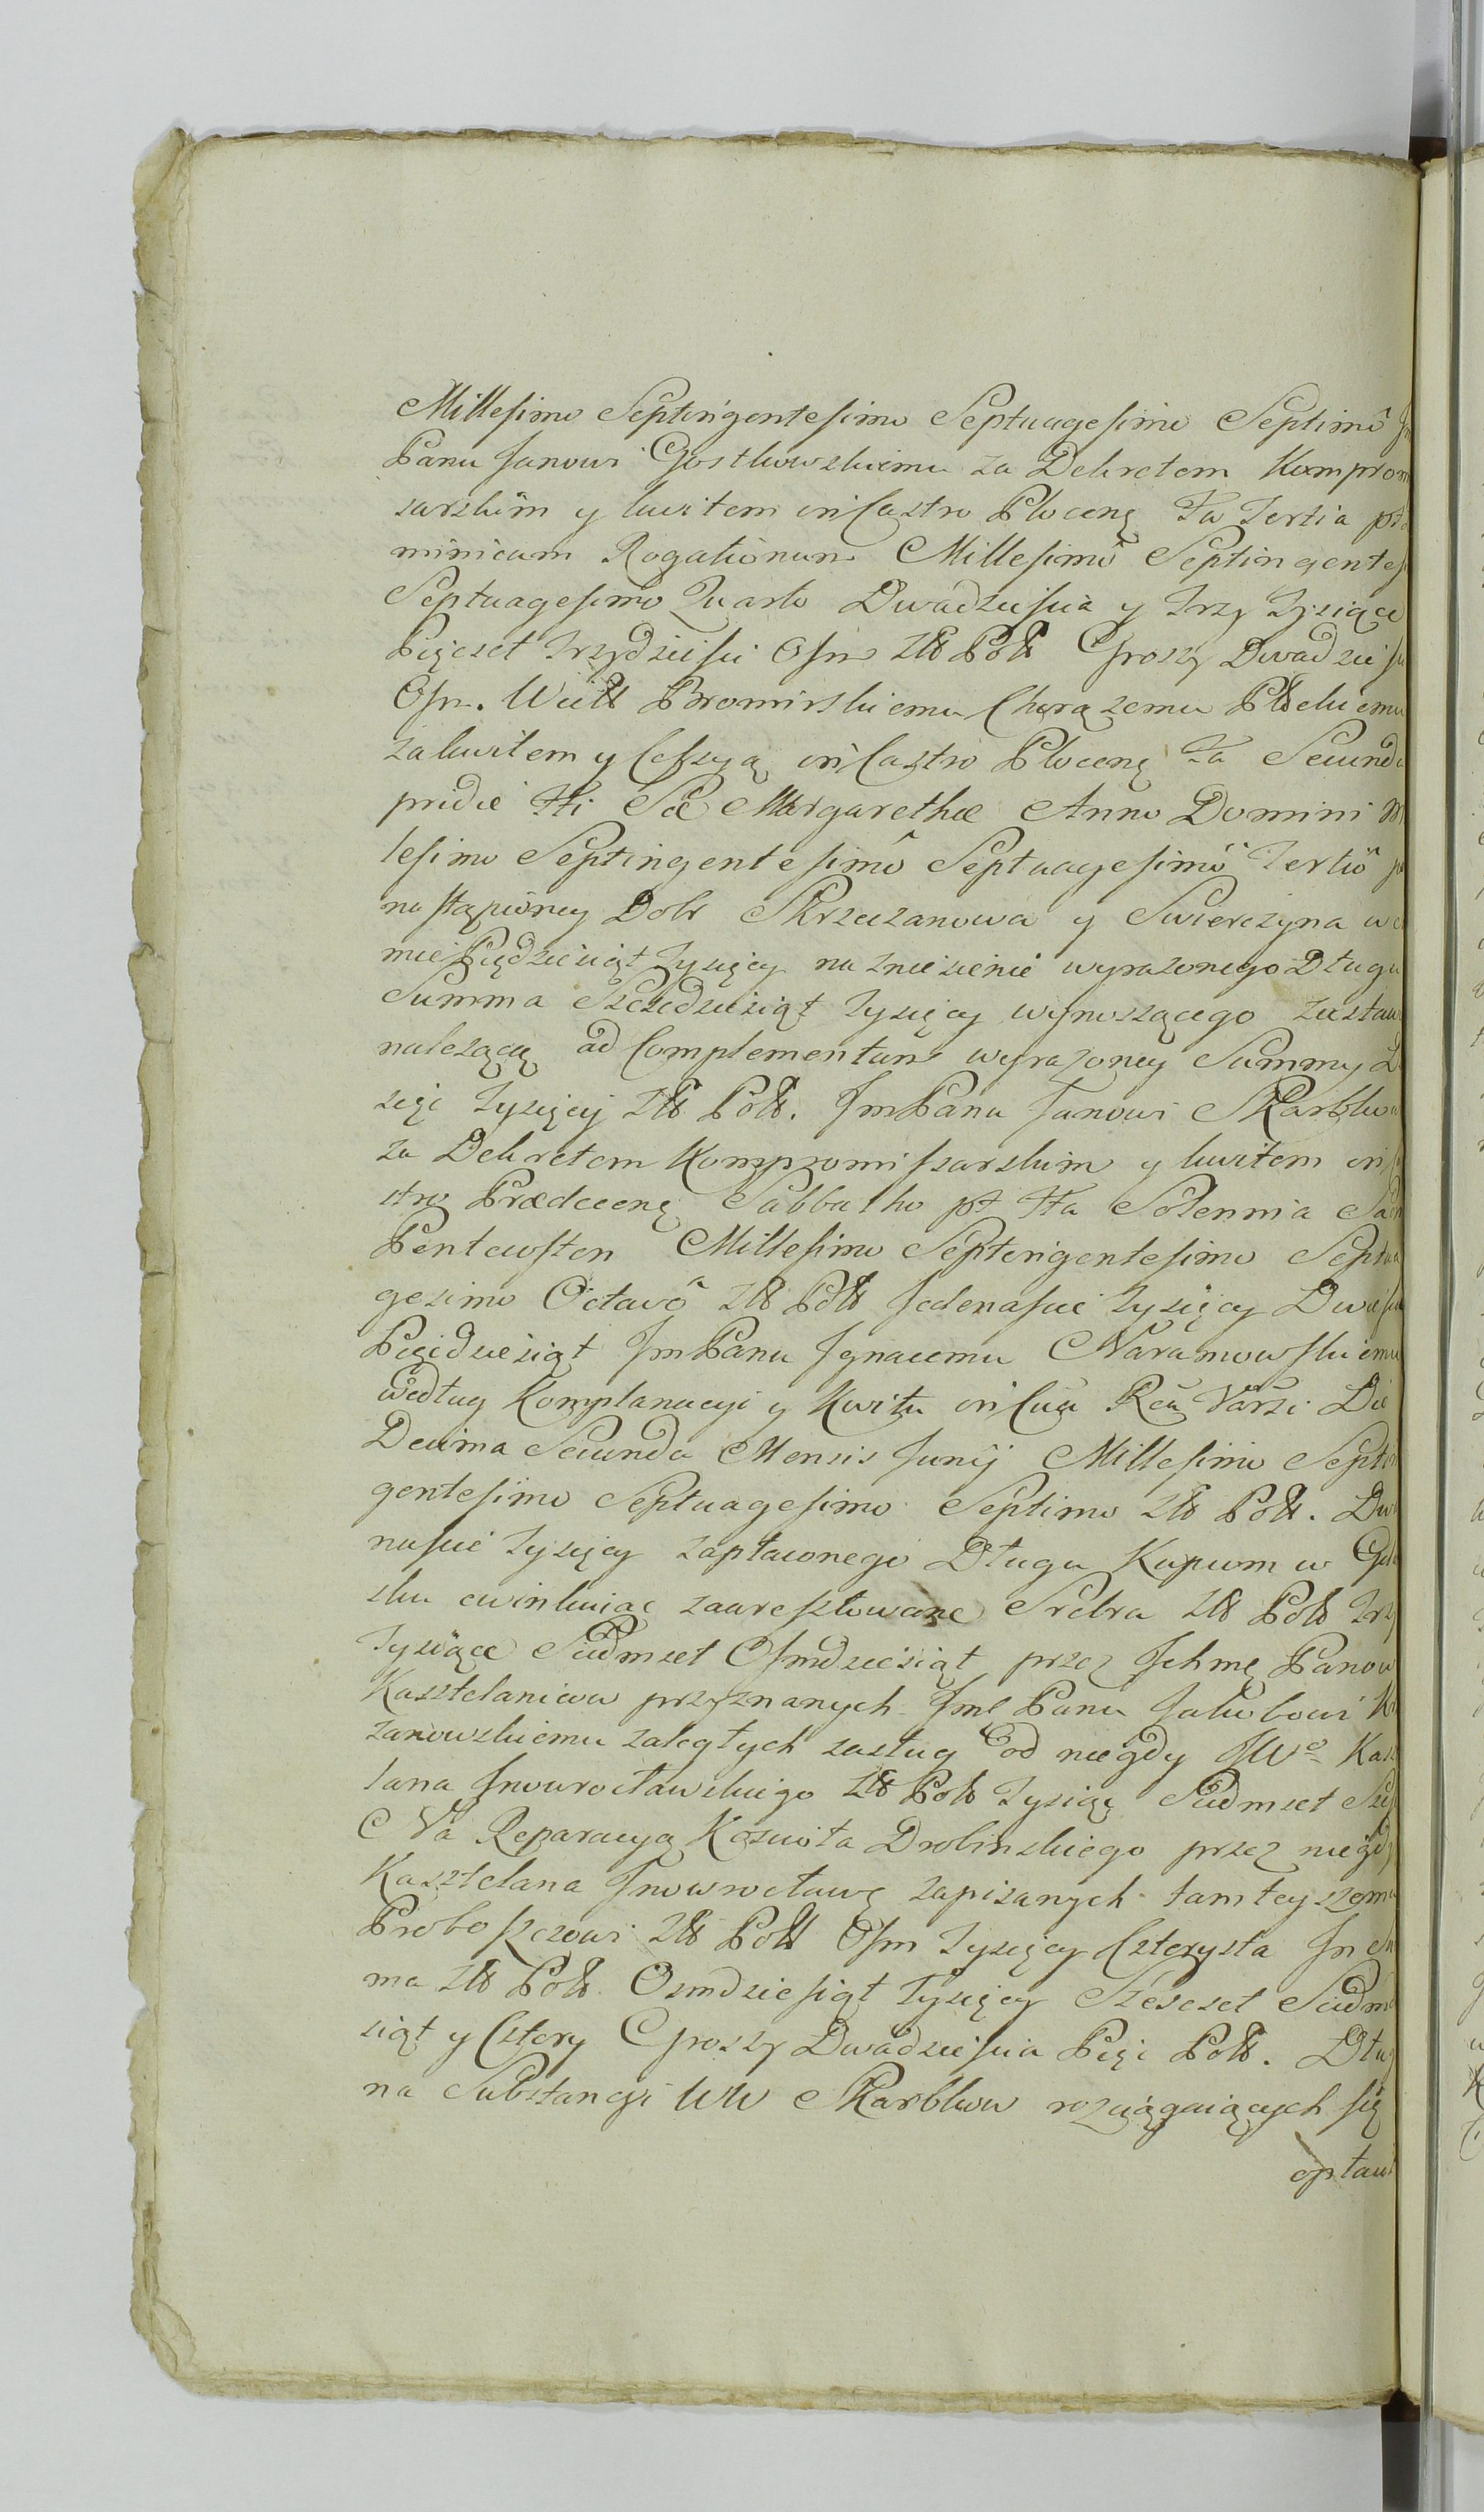 Millesimo Septingentesimo Septuagesimo Septimô
Panu Janowi Gostkowskiemu za Dekretem Komprom
sarskim y kwitem in Castro Plocenę Fa Tertia pt
minicam Rogationum Millesimô Septingentes
Septuagesimo Quarto Dwadziescia y Trzy Tysiące
Pięcset Trzydziesci Osm Złł Poll Groszy Dwadzies
Osm. Wielł Bromirskiemu Chorązemu Płłckiemu
za kwitem y Cessyą in Castro Plocenę Fa Secunda
pridie Fti Sæ Margarethæ Anno Domini M
lesimo Septingentesimô Septuagesimô Tertiô
nastąpioney Dobr Skrzeczanowa y Swierczyna w
mie Piędziesiąt Tysięcy na zniesienie wyrazonego Długu
Summa Szescdziesiąt Tysięcy wynoszącego zostaw
nalezącą ad Complementum wyrazoney Summy
sięc Tysięcy Złł Poll. Jm Panu Janowi Skarbkow
za Dekretem Kompromissarskim y kwitem in
stro Prædcenę Sabbatho pt Fta Solennia Sa
Pentecosten Millesimo Septingentesimo Septua
gesimo Octavô Złł Poll Jedenascie Tysięcy Dwies
Pięcdziesiąt Jm Panu Ignacemu Naramowskiemu
według Komplanacyi y Kwitu in Cuia Rea Varsi Die
Decima Secunda Mensis Junij Millesimo Septin
gentesimo Septuagesimo Septimo Złł Poll. Dwa
nascie Tysięcy zapłaconego Długu Kupcom w Gda
sku ewinkuiąc zaaresztowane Srebra Złł Poll Trzy
Tysiące Siedmset Osmdziesiąt przez Ichmę Panow
Kasztelanicow przyznanych Jmę Panu Jakubowi
zanowskiemu zaległych zasług od niegdy JWo Kasz
lana Inowrocławskiego Złł Poll Tysiąc Siedmset
Na Reparacyą Koscioła Drobinskiego przez niegdy
Kasztelana Inowrocławę zapisanych tamteyszemu
Proboszczowi Złł Poll Osm Tysięcy Czterysta In
ma Złł Poll Osmdziesiąt Tysięcy Szescset Siedm
siąt y Cztery Groszy Dwadziescia Pięc Poll. Dłu
na Substancyi WW Skarbkow rozciągaiących się
opław